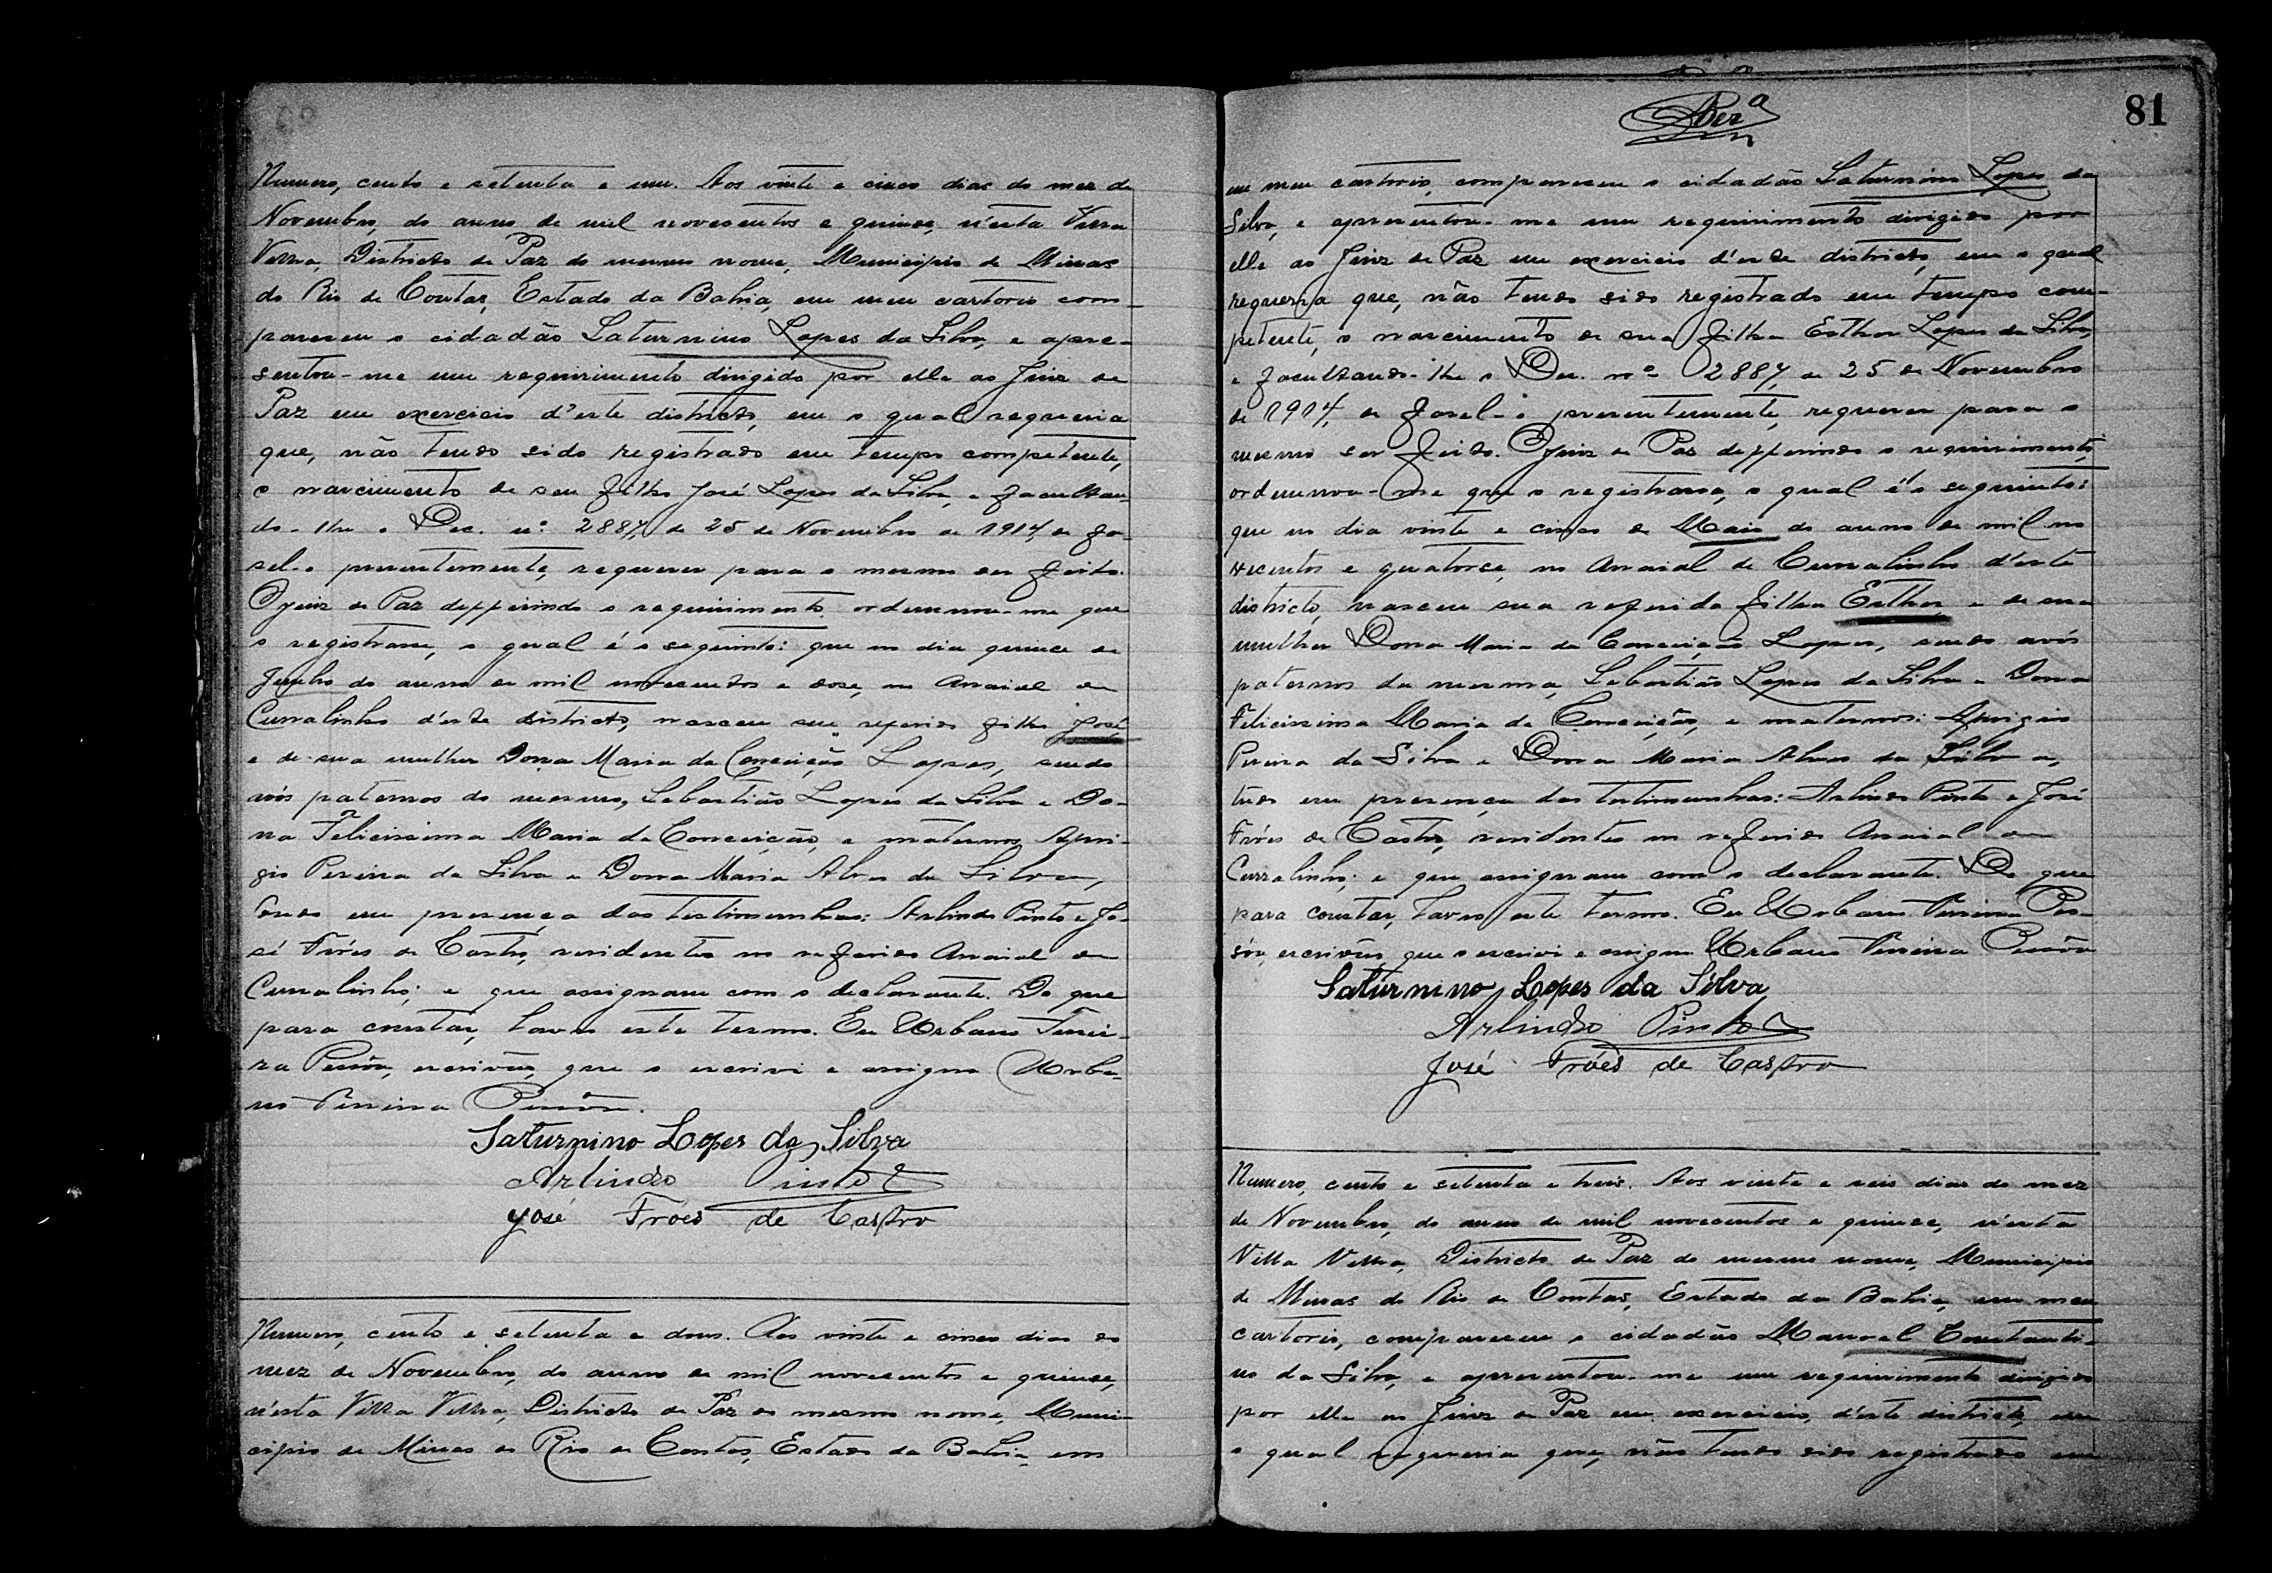 Numero, cento e setenta e um. Aos vinte e cinco dias do mez de
Novembro, do anno de mil novecentos e quinse, n'esta Villa
Velha, Districto de Paz do mesmo nome, Municipio de Minas
do Rio de Contas, Estado da Bahia, em meu cartorio com-
pareceu o cidadão Saturnino Lopes da Silva, e apre-
sentou-me um requirimento dirigido por elle ao Juiz de
Paz em exercicio d'este districto, em o qual requeria
que, não tendo sido registrado em tempo competente,
o nascimento de seu filho José Lopes da Silva, e facultan-
do-lhe o Dec. nº 2887, de 25 de Novembro de 1914, de fa-
sel-o presentemente, requerer para o mesmo ser feito.
O Juiz de Paz defferindo o requirimento, ordennou-me que
o registrasse, o qual é o seguinte: que no dia quinse de
Junho do anno de mil novecentos e dose, no Arraial de
Curralinho d'este districto, nasceu seu referido filho José
e de sua mulher Dona Maria da Conceição Lopes, sendo
avós paternos do mesmo, Sebastião Lopes da Silva e Do-
na Felicissima Maria da Conceição, e maternos Apri-
gio Pereira da Silva e Dona Maria Alves da Silva,
sendo em presença das testimunhas: Arlindo Pinto e Jo-
sé Fróes de Castro, residentes no referido Arraial de
Curralinho; e que assignam com o declarante. Do que
para constar, lavro este termo. Eu Urbano Perei-
ra Pessôa, escrivão, que o escrivi e assigno Urba-
no Pereira Pessôa.
Saturnino Lopes da Silva
Arlindo Pinto
José Froes de Castro
Numero, cento e setenta e dous. Aos vinte e cinco dias do
mez de Novembro, do anno de mil novecentos e quinse,
n'esta Villa Velha, Districto de Paz do mesmo nome, Muni-
cipio de Minas do Rio de Contas, Estado da Bahia, em
81
em meu cartorio, compareceu o cidadão Saturnino Lopes da
Silva, e apresentou-me um requirimento dirigido por
elle ao Juiz de Paz em exercicio d'este districto, em o qual
requeria que, não tendo sido registrado em tempo com-
petente, o nascimento de sua filha Esther Lopes da Silva,
e facultando-lhe o Dec. nº 2887, de 25 de Novembro
de 1914, de fasel-o presentemente, requerer para o
mesmo ser feito. O Juiz de Paz defferindo o requirimento,
ordennou-me que o registrasse, o qual é o seguinte:
que no dia vinte e cinco de Maio do anno de mil no
vecentos e quatorse, no Arraial de Curralinho d'este
districto, nasceu sua referida filha Esther e de sua
mulher Dona Maria da Conceição Lopes, sendo avós
paternos da mesma, Sebastião Lopes da Silva e Dona
Felicissima Maria da Conceição, e maternos: Aprigio
Pereira da Silva e Dona Maria Alves da Silva,
tudo em presença das testimunhas: Arlindo Pinto e José
Fróes de Castro, residentes no referido Arraial de
Curralinho; e que assignam com o declarante. Do que
para constar, lavro este termo. Eu Urbano Pereira Pes-
sôa, escrivão, que o escrivi e assigno Urbano Pereira Pessôa
Saturnino Lopes da Silva
Arlindo Pinto
José Fróes de Castro
Numero, cento e setenta e treis. Aos vinte e seis dias do mez
de Novembro, do anno de mil novecentos e quinse, n'esta
Villa Velha, Districto de Paz do mesmo nome, Municipio
de Minas do Rio de Contas, Estado da Bahia, em meu
cartorio, compareceu o cidadão Manoel Constanti-
no da Silva, e apresentou-me um requirimento dirigido
por elle ao Juiz de Paz em exercicio, d'este districto, em
o qual requeria que, não tendo sido registrado em